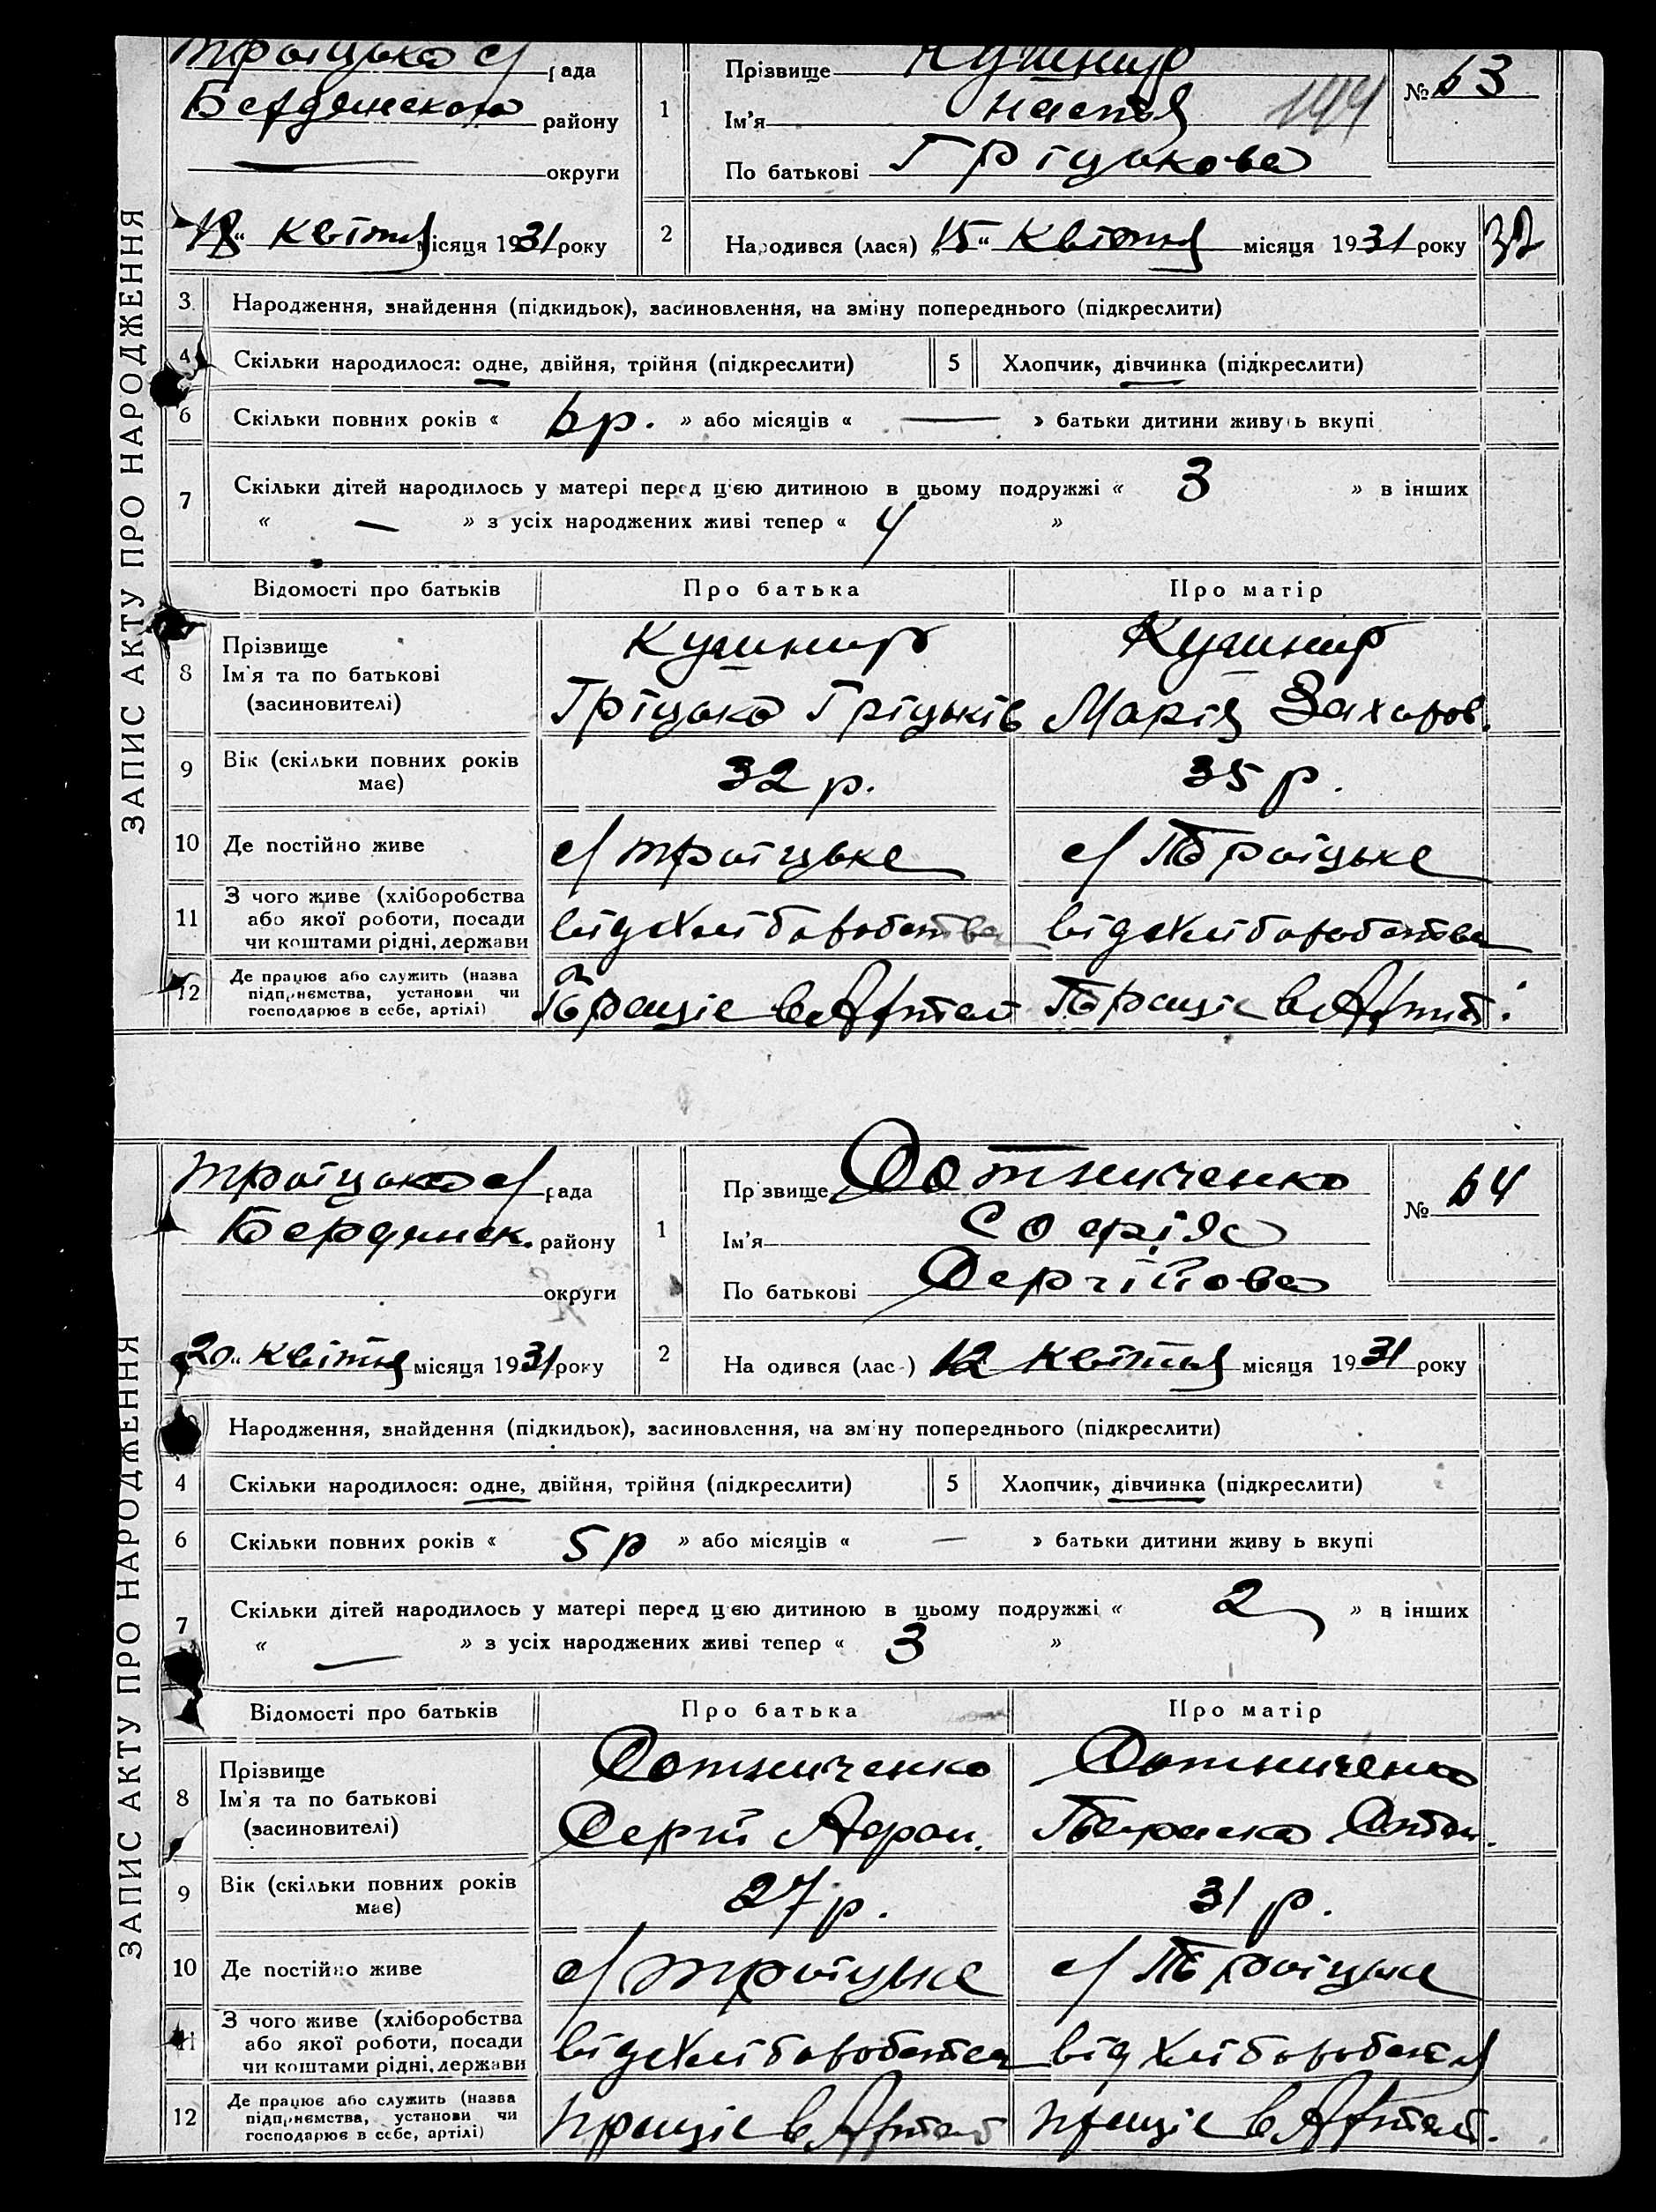 ЗАПИС АКТУ ПРО НАРОДЖЕННЯ
Троіцька с/ рада
Бердянського району
округи
18 „ Квітня місяця 1931 року
1
Прізвище Кушнир
Ім'я Настя
144
По батькові Гріцькова
№ 63
2
Народився (лася) „15 „ Квітня місяця 1931 року
3 Народження, знайдення (підкидьок), засиновлення, на зміну попереднього (підкреслити)
4 Скільки народилося: одне, двійня, трійня (підкреслити)
5 Хлопчик, дівчинка (підкреслити)
6 Скільки повних років « 6 р. » або місяців « — » батьки дитини живу ь вкупі
7 Скільки дітей народилось у матері перед цією дитиною в цьому подружжі « 3 » в інших
« — » з усіх народжених живі тепер « 4 »
Відомості про батьків Про батька Про матір
8 Прізвище
Ім'я та по батькові
(засновителі)
Кушнир
Гріцько Гріцьків
Кушнир
Марія Захаров.
9 Вік (скільки повних років має)
32 р. 35 р.
10 Де постійно живе
с/ Троіцьке с/ Троіцьке
11 З чого живе (хліборобства
або якої роботи, посади
чи коштами рідні, держави
від хліборобства від хліборобства
12 Де працює або служить (назва
підприємства, установи чи
господарює в себе, артілі)
Праціє в Артелі Праціє в Артіл.
ЗАПИС АКТУ ПРО НАРОДЖЕННЯ
Троіцька с/ рада
Бердянськ. району
округи
20 „ Квітня місяця 1931 року
1
Прізвище Сотниченко
Ім'я Софія
По батькові Сергійова
№ 64
2
На одився (лас ) 12 Квітня місяця 1931 року
Народження, знайдення (підкидьок), засиновлення, на зміну попереднього (підкреслити)
4 Скільки народилося: одне, двійня, трійня (підкреслити)
5 Хлопчик, дівчинка (підкреслити)
6 Скільки повних років « 5 р » або місяців « — » батьки дитини живу ь вкупі
7 Скільки дітей народилось у матері перед цією дитиною в цьому подружжі « 2 » в інших
« — » з усіх народжених живі тепер « 3 »
Відомості про батьків Про батька Про матір
8 Прізвище
Ім'я та по батькові
(засиновителі)
Сотниченко
Сергій
Сотниченко
9 Вік (скільки повних років має)
27 р. 31 р.
10 Де постійно живе
с/ Троіцьке с/ Троіцьке
11 З чого живе (хліборобства
або якої роботи, посади
чи коштами рідні, держави
від хліборобства від хліборобства
12 Де працює або служить (назва
підприємства, установи чи
господарює в себе, артілі)
працiє в Артелі праціє в Артел.